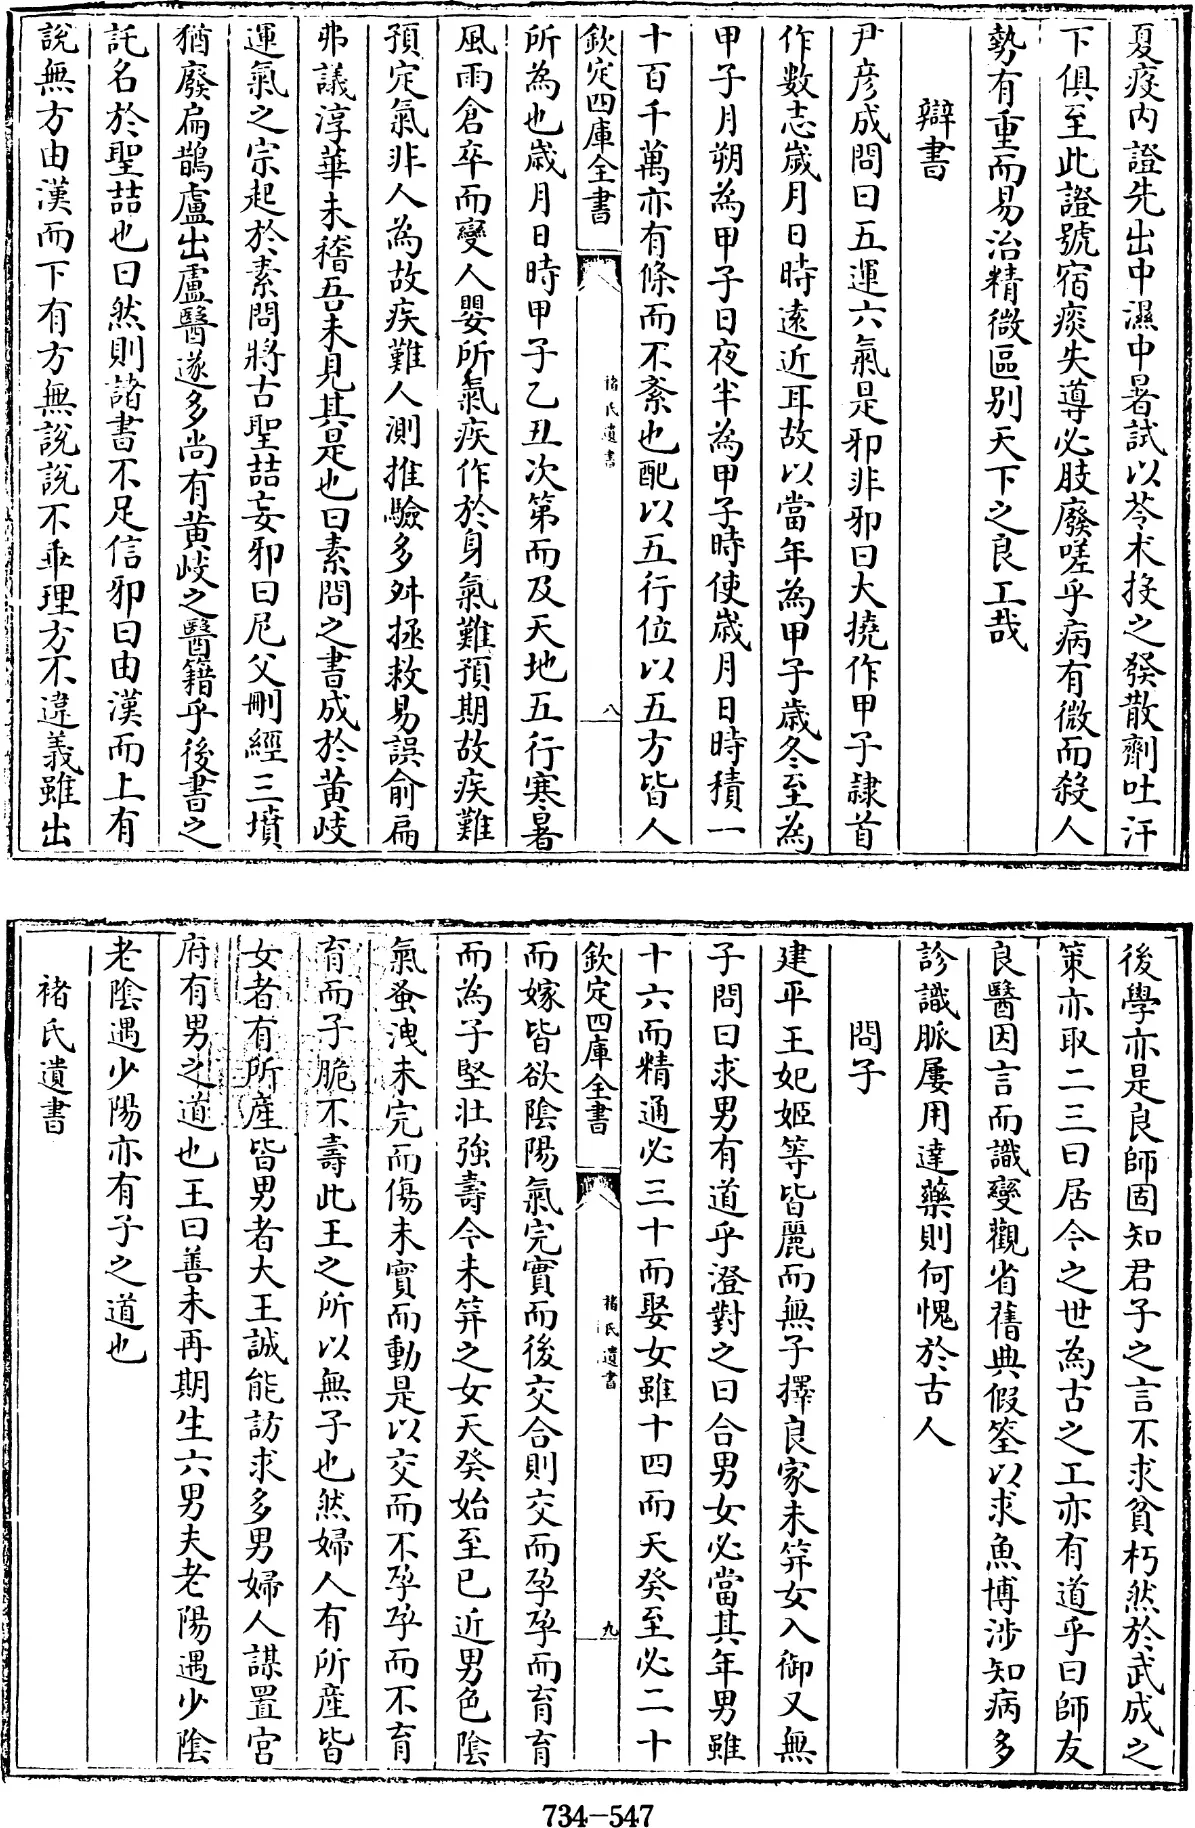 夏疫内證先出中濕中暑試以苓术投之發散劑吐汗
下俱至此證號宿痰失導必肢廢嗟乎病有微而殺人
勢有重而易治精微區别天下之良工哉
辯書
尹彦成問曰五運六氣是邪非邪曰大撓作甲子隷首
作數志嵗月日時遠近耳故以當年為甲子歳冬至為
甲子月朔為甲子日夜半為甲子時使歳月日時積一
十百千萬亦有條而不紊也配以五行位以五方皆人
欽定四庫全書
褚氏遺書
八
所為也歳月日時甲子乙丑次第而及天地五行寒暑
風雨倉卒而變人嬰所氣疾作於身氣難預期故疾難
預定氣非人為故疾難人測推驗多舛拯救易誤俞扁
弗議淳華未稽吾未見其是也曰素問之書成於黄岐
運氣之宗起於素問將古聖喆妄邪曰尼父刪經三墳
猶廢扁鵲盧出盧醫遂多尚有黄岐之醫籍乎後書之
託名於聖喆也曰然則諸書不足信邪曰由漢而上有
說無方由漢而下有方無說說不乖理方不違義雖出
後學亦是良師固知君子之言不求貧朽然於武成之
策亦取二三曰居今之世為古之工亦有道乎曰師友
良醫因言而識變觀省舊典假筌以求魚博涉知病多
診識脈屢用達藥則何愧於古人
問子
建平王妃姬等皆麗而無子擇良家未筓女入御又無
子問曰求男有道乎澄對之曰合男女必當其年男雖
十六而精通必三十而娶女雖十四而天癸至必二十
欽定四庫全書
褚氏遺書
九
而嫁皆欲陰陽氣完實而後交合則交而孕孕而育育
而為子堅壯強壽今未筓之女天癸始至已近男色陰
氣蚤洩未完而傷未實而動是以交而不孕孕而不育
育而子脆不壽此王之所以無子也然婦人有所産皆
女者有所産皆男者大王誠能訪求多男婦人謀置宫
府有男之道也王曰善未再期生六男夫老陽遇少陰
老陰遇少陽亦有子之道也
褚氏遺書
734-547